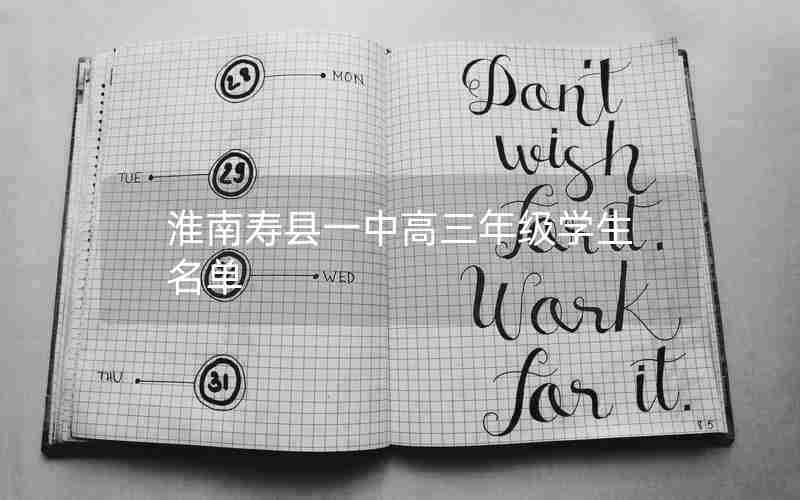 28
MON
TUE
29
WED
THU
31
Don't
wish
for it.
Work
for it.
85
淮南寿县一中高三年级学生
名单